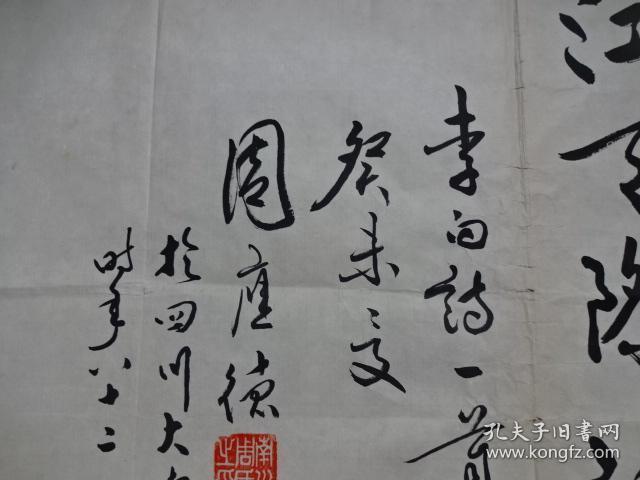 江
李白詩一首
癸未之夏
周應德
於四川大
时年八十二
孔夫子旧书网
www.kongfz.com